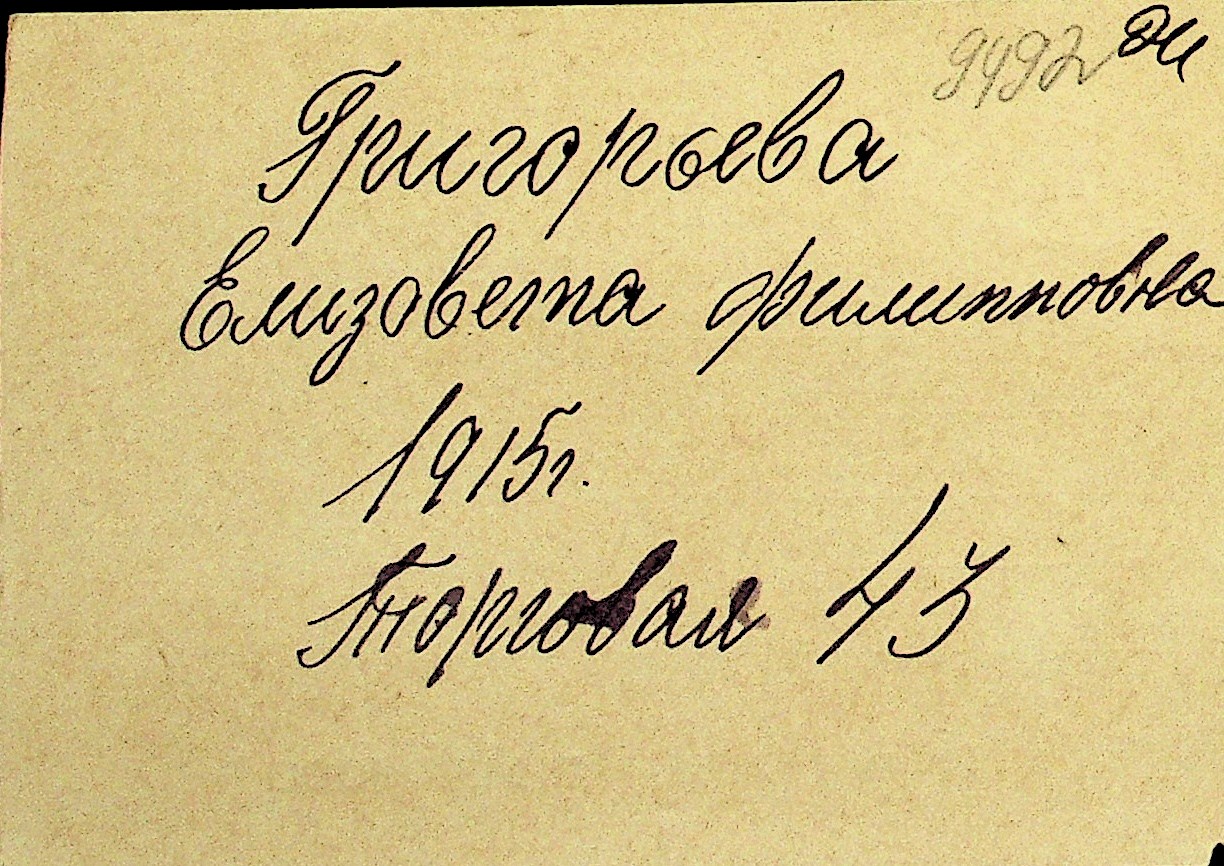 9492
Григорьева
Елизовета филипповна
1915г.
Торговая 43